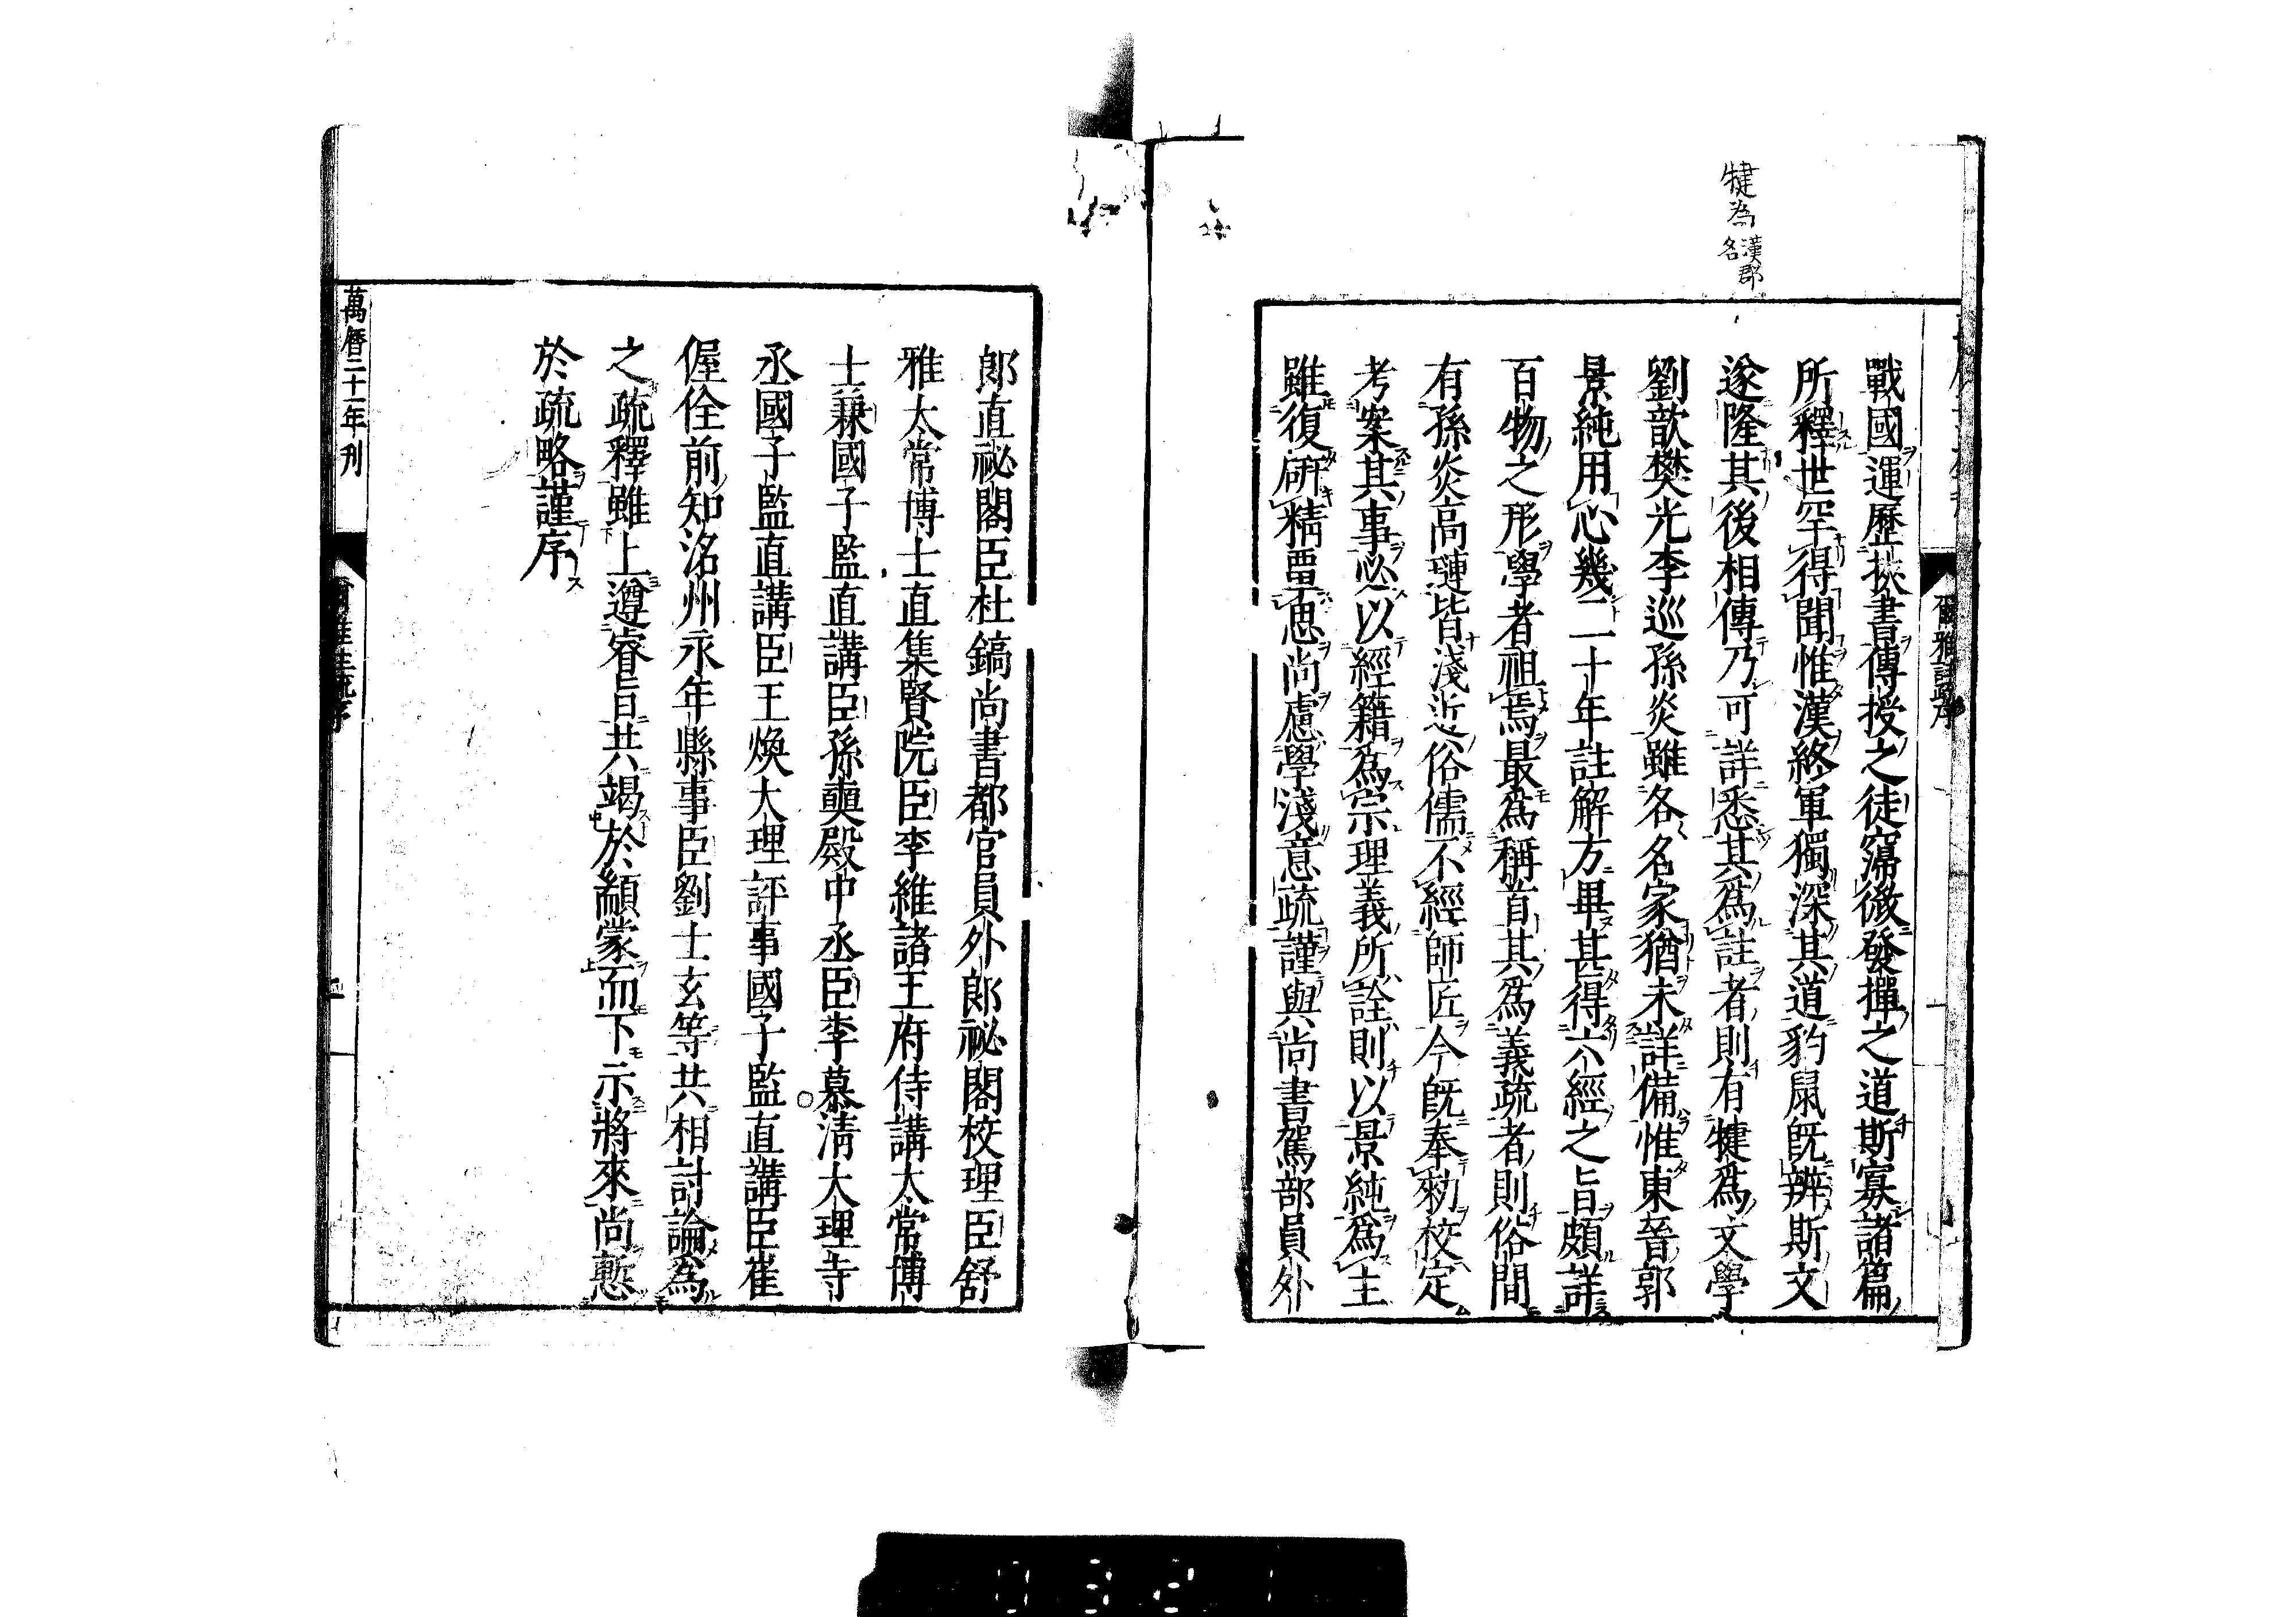 犍為漢郡名
爾雅註疏序
戰國運歷挾書傳授之徒寖微發揮之道斯寡諸篇
所釋世罕得聞惟漢終軍獨深其道豹鼠旣辨斯文
遂隆其後相傳乃可詳悉其爲註者則有犍爲文學
劉歆樊光李巡孫炎雖各名家猶未詳備惟東晉郭
景純用心幾二十年註解方畢甚得六經之旨頗詳
百物之形學者祖焉最爲稱首其爲義疏者則俗間
有孫炎高璉皆淺近俗儒不經師匠今旣奉勑校定
考案其事必以經籍爲宗理義所詮則以景純爲主
雖復硏精覃思尚慮學淺意疏謹與尚書駕部員外
郎直祕閣臣杜鎬尚書都官員外郎祕閣校理臣舒
雅太常博士直集賢院臣李維諸王府侍講太常博
士兼國子監直講臣孫奭殿中丞臣李慕淸大理寺
丞國子監直講臣王煥大理評事國子監直講臣崔
偓佺前知洺州永年縣事臣劉士玄等共相討論爲
之疏釋雖上遵睿旨共竭於顓蒙而下示將來尚慙
於疏略謹序
萬曆二十一年刊
爾雅註疏序